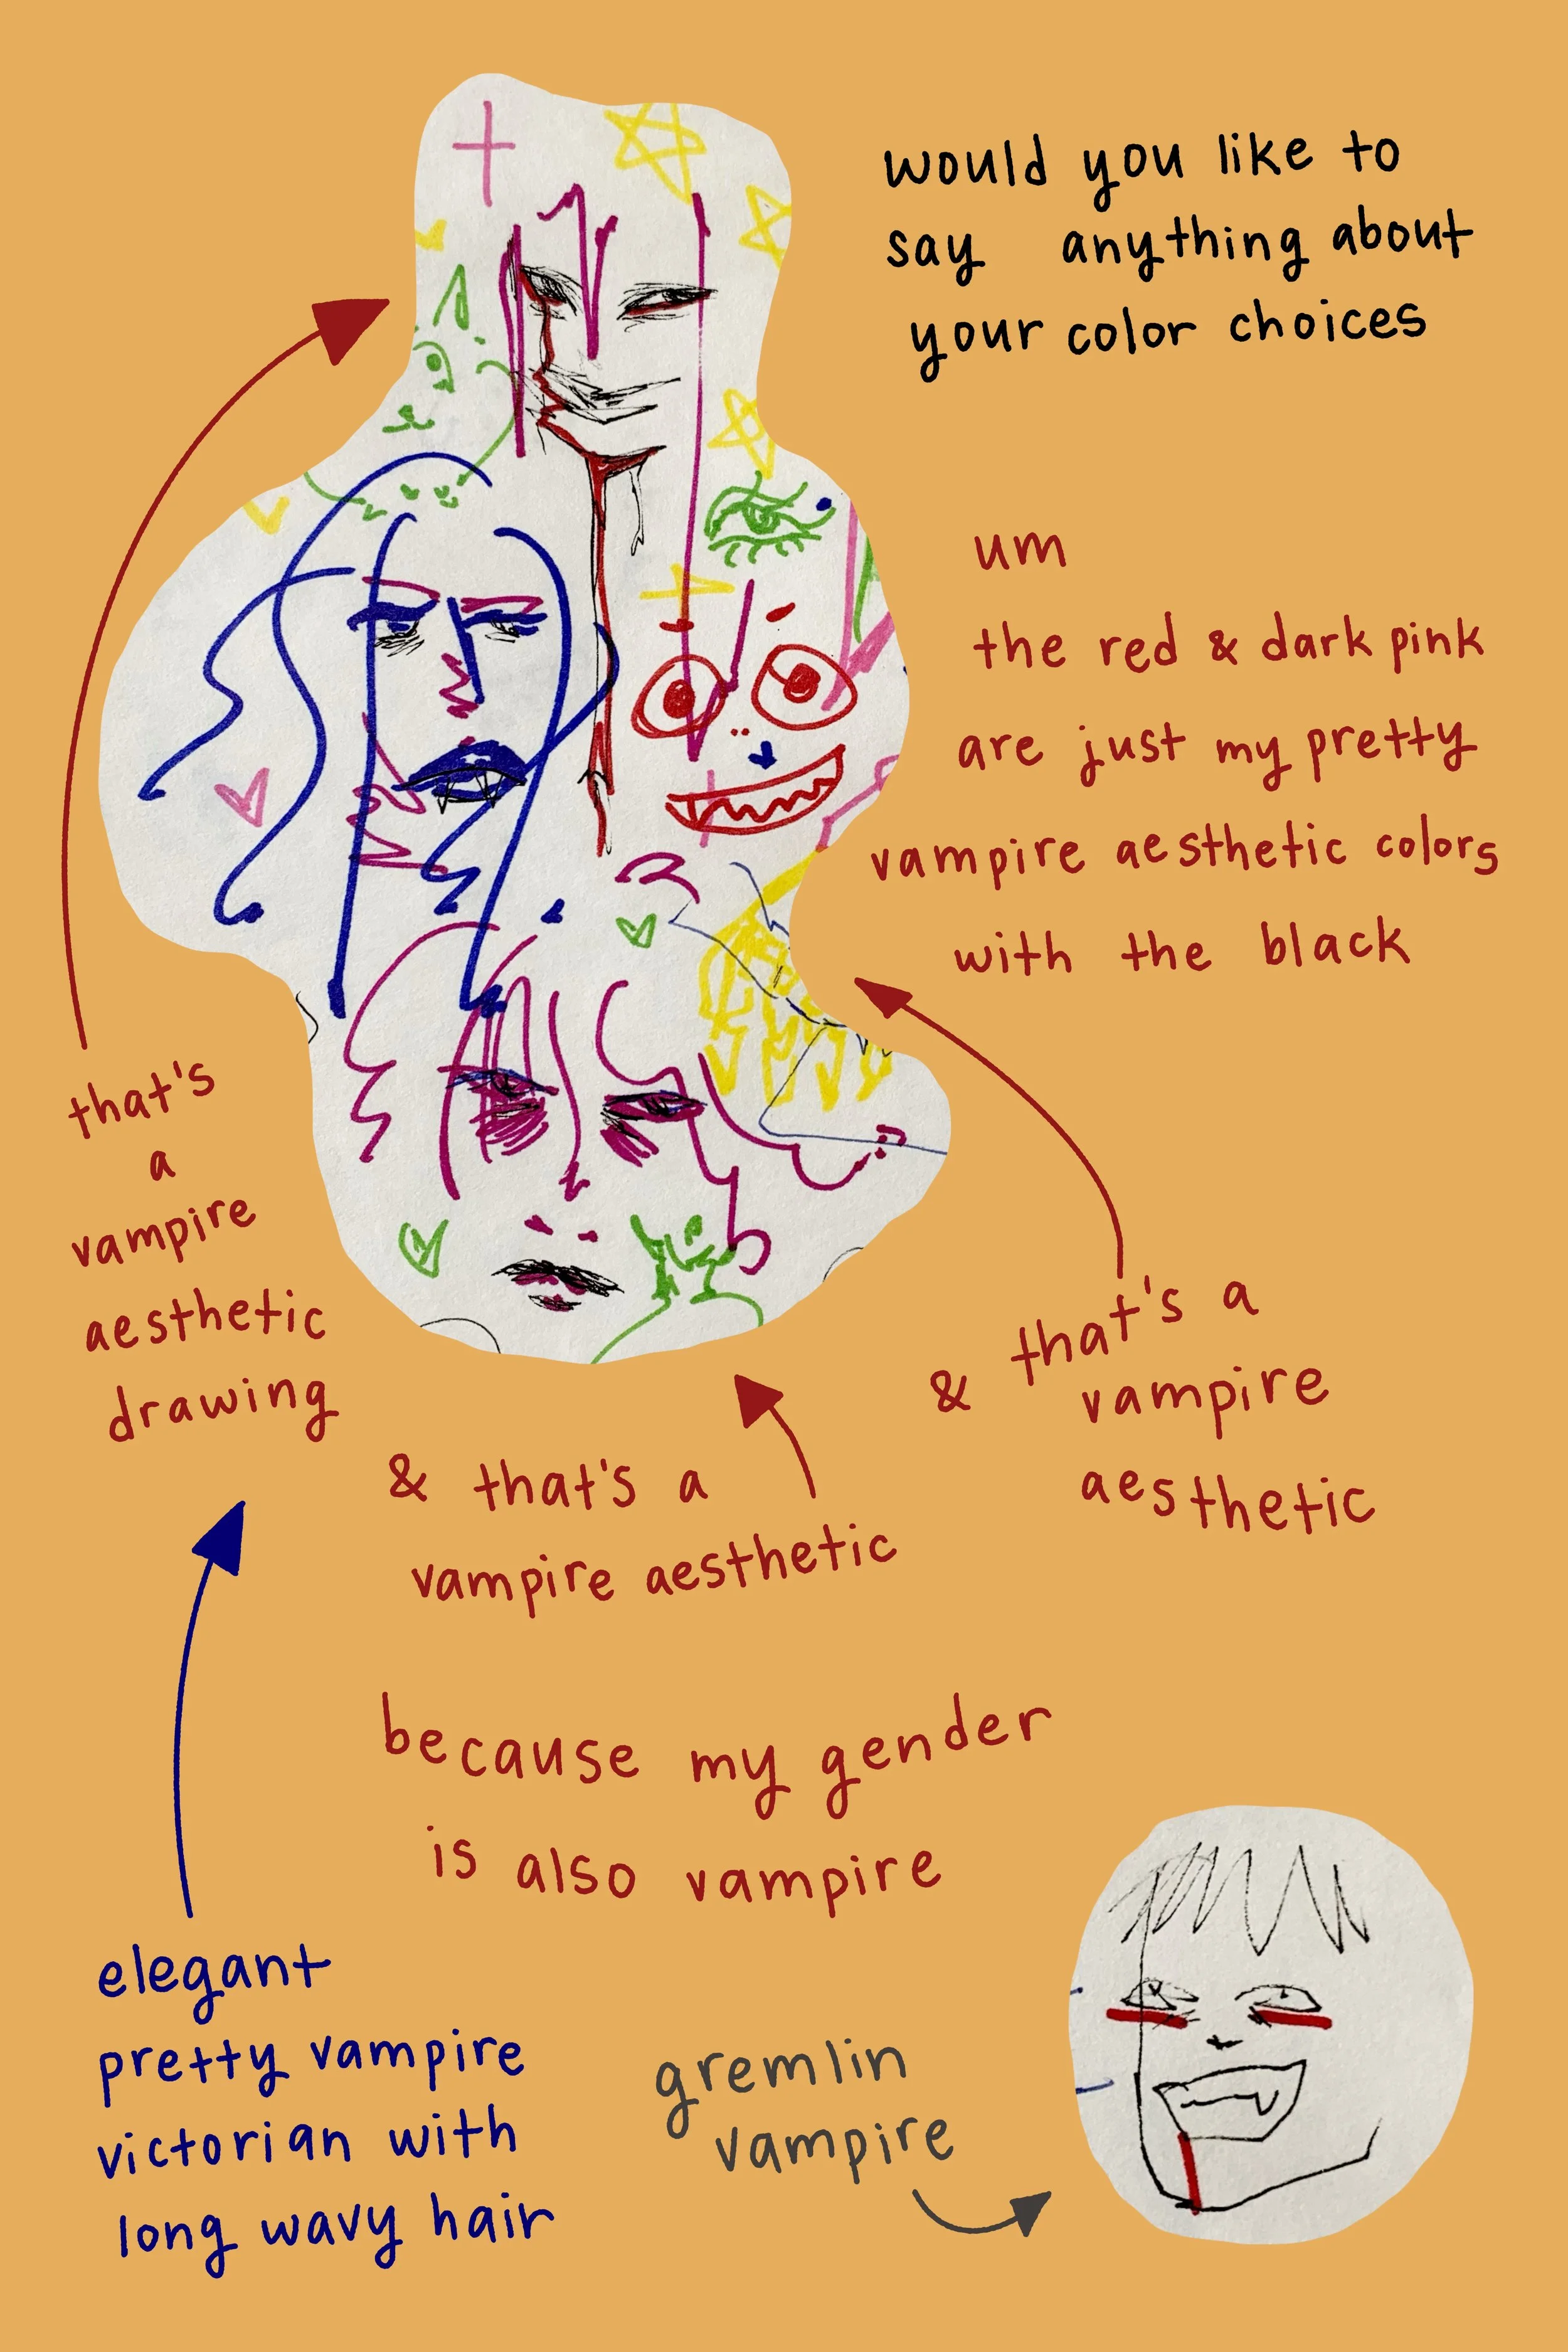 would you like to
say anything about
your color choices
um
the red & dark pink
are just my pretty
vampire aesthetic colors
with the black
that's
a
vampire
aesthetic
drawing
& that's a
vampire aesthetic
& that's a
vampire
aesthetic
because my gender
is also vampire
elegant
pretty vampire
victorian with
long wavy hair
gremlin
vampire